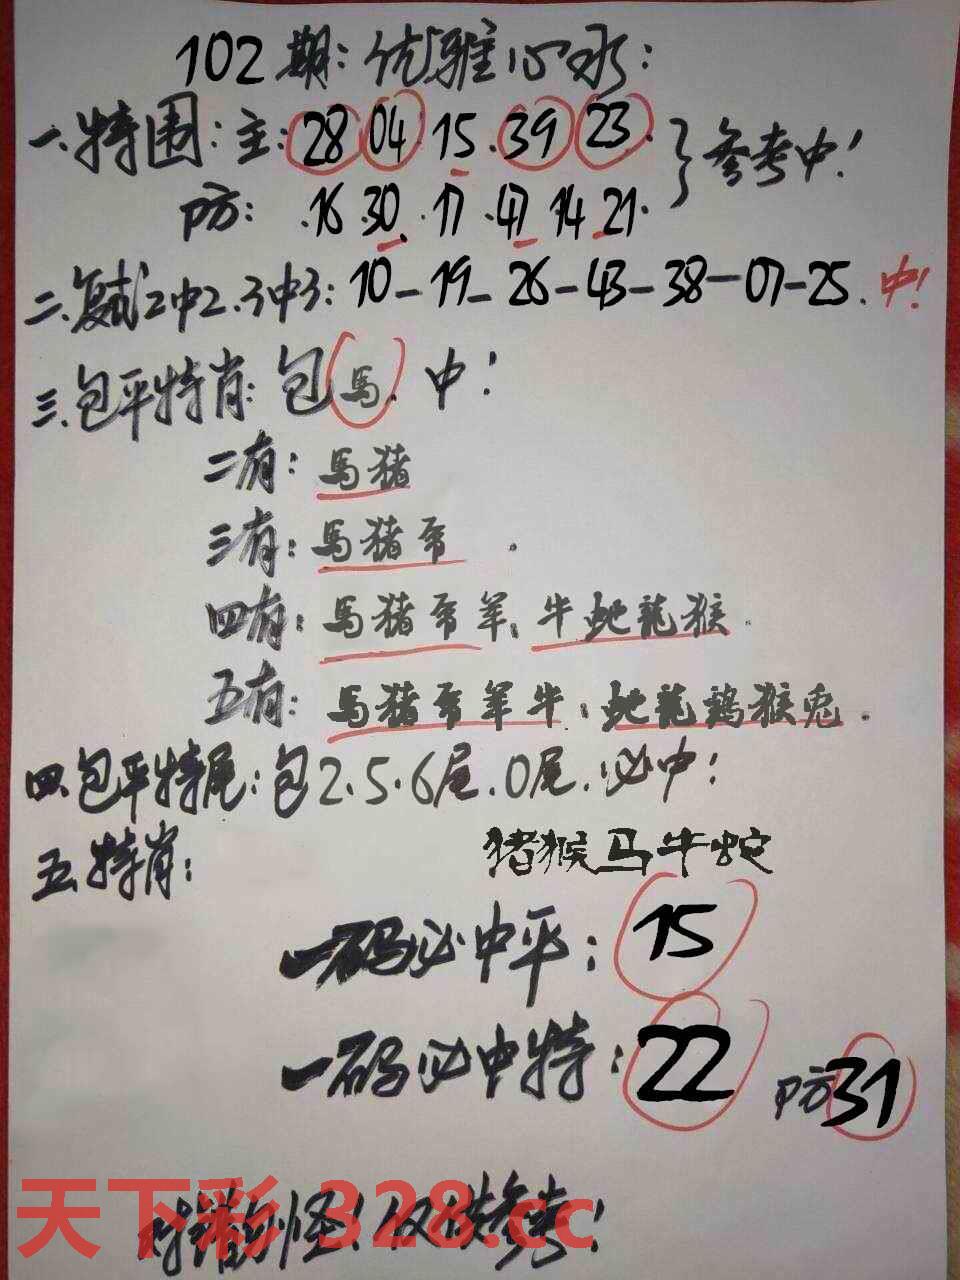 102期:优雅心水:
一.特围:主:28 04 15.39 23.
参考中!
防: .16 30. .17 .47 14 21.
二.复式2中2.3中3:10-19-26-43-38-07-25.中!
三.包平特肖:包马.中!
二有:馬猪
三有:馬猪帝.
四有:馬猪帝羊.牛蛇龍猴.
五有:馬猪帝羊牛:蛇龍鷄猴兎.
四.包平特尾:包2.5.6尾.0尾.必中!
五.特肖: 猪猴马牛蛇
一码必中平:15
一码必中特:22 防31
对错勿怪!仅供参考!
天下彩 328.cc